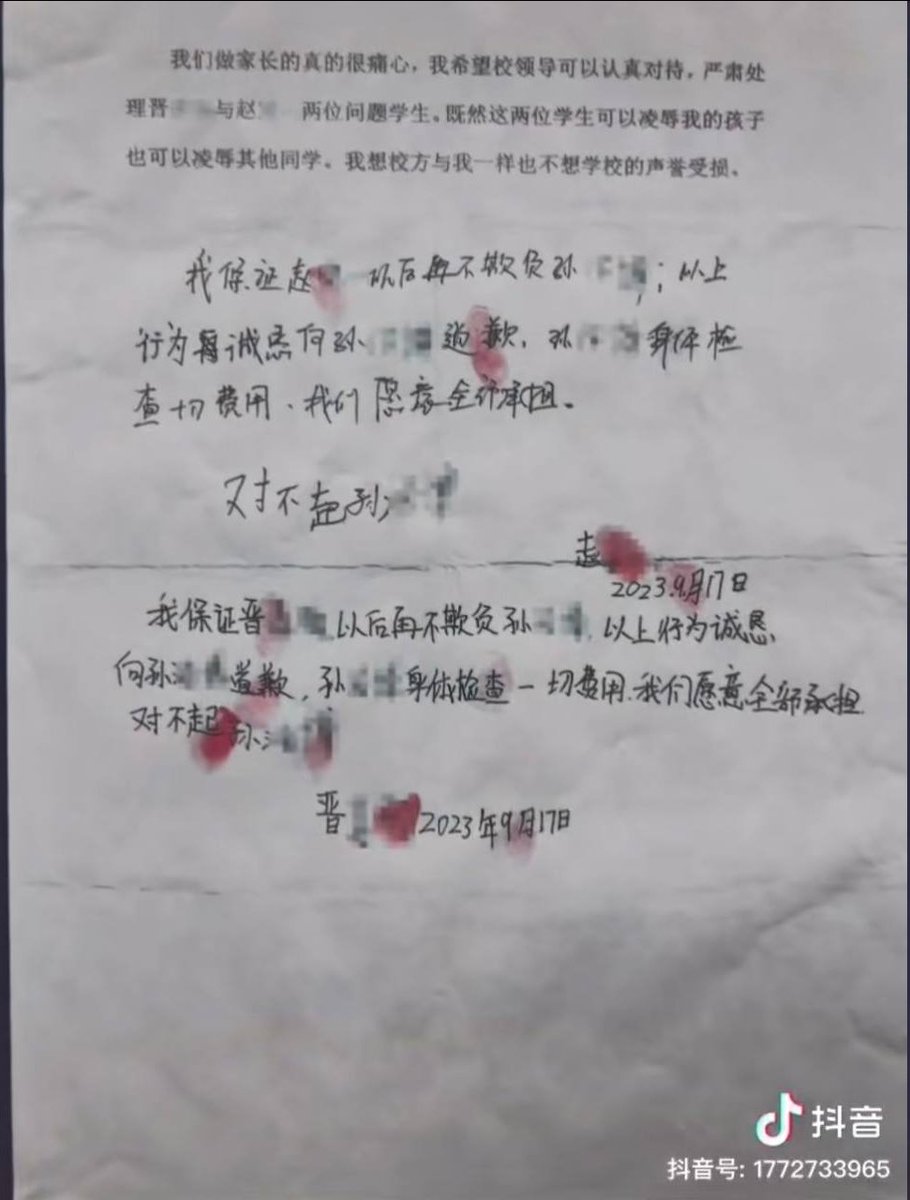 我们做家长的真的很痛心，我希望校领导可以认真对待，严肃处
理晋 与赵 两位问题学生。既然这两位学生可以凌辱我的孩子
也可以凌辱其他同学。我想校方与我一样也不想学校的声誉受损。
我保证赵 以后再不欺负孙 ；以上
行为 诚恳向孙 道歉，孙 身体检
查一切费用、我们愿意全部承担。
对不起孙
赵
2023.9月17日
我保证晋 以后再不欺负孙 ，以上行为诚恳
向孙 道歉，孙 身体检查一切费用，我们愿意全部承担
对不起孙
晋 2023年9月17日
抖音
抖音号: 1772733965